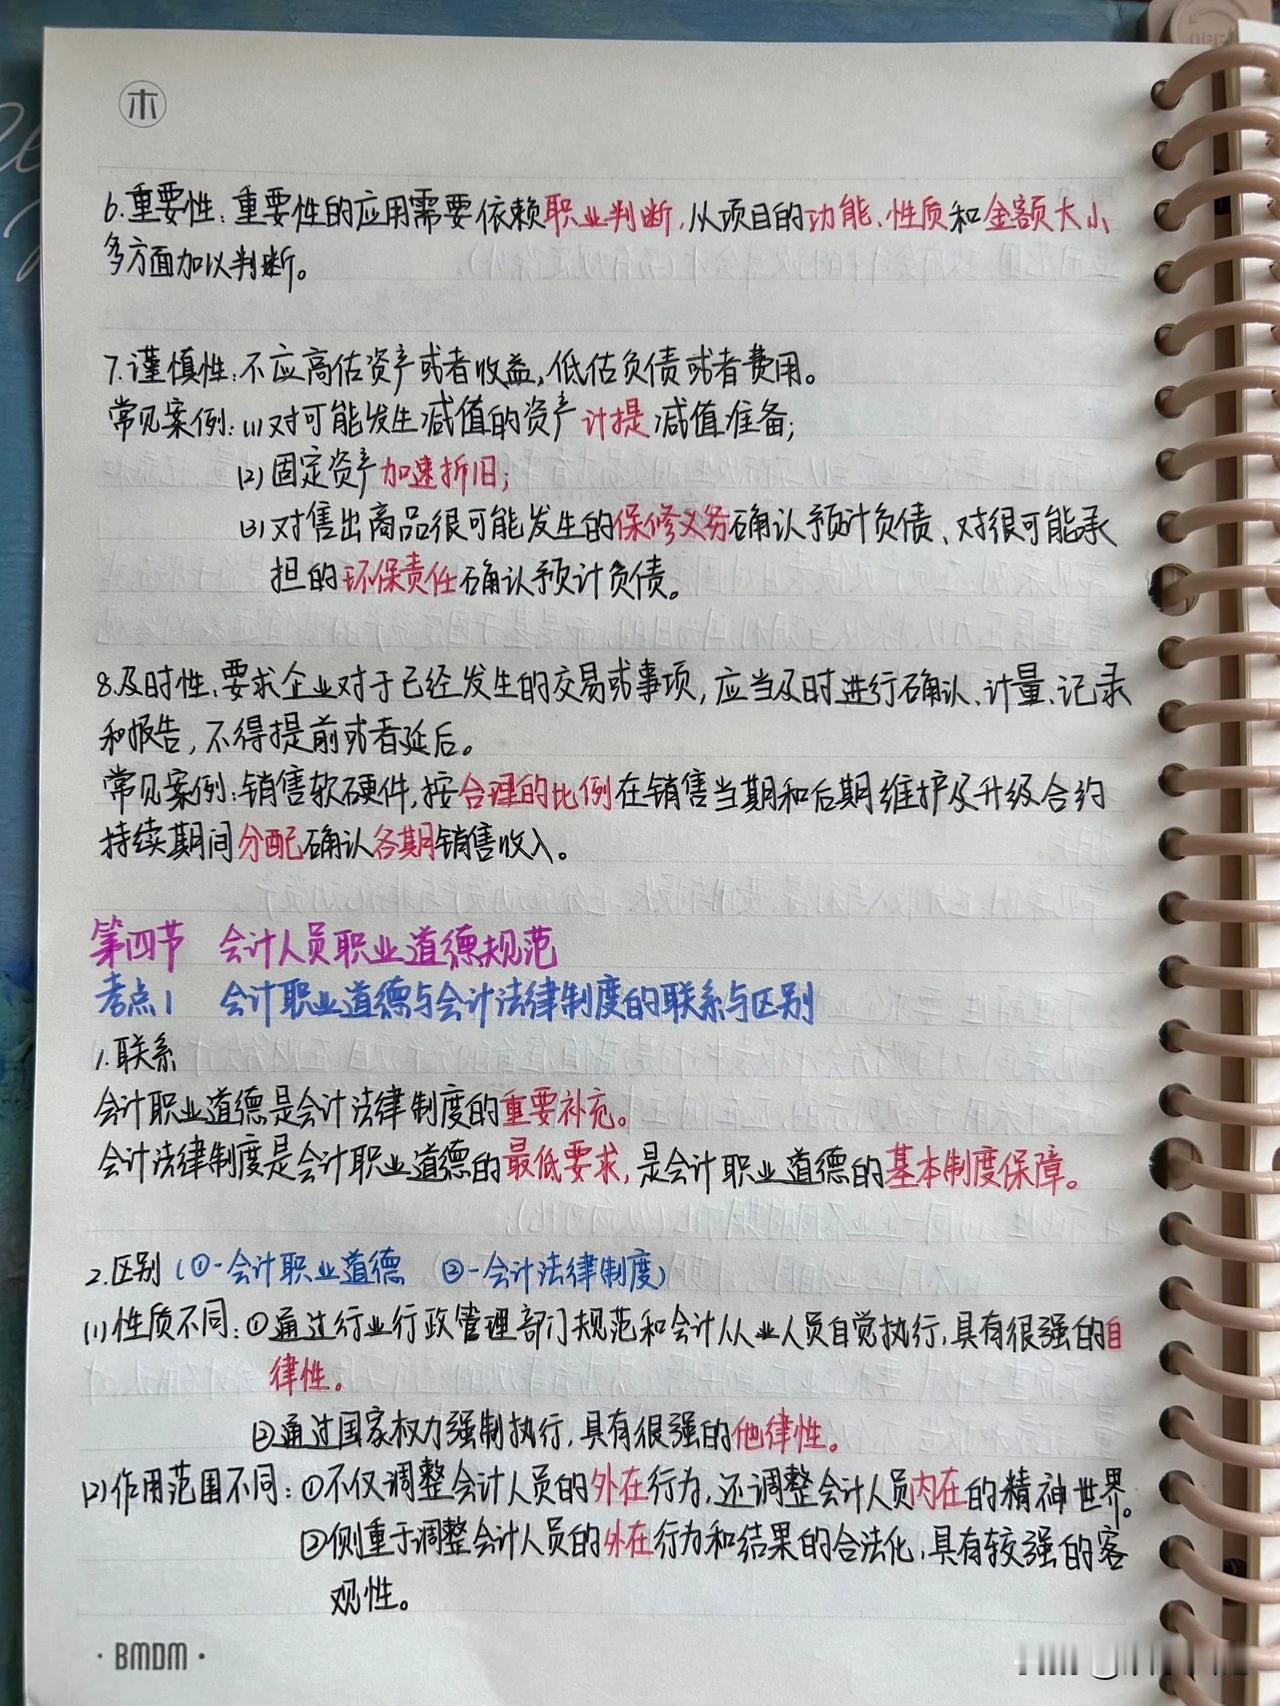 木
6.重要性:重要性的应用需要依赖职业判断,从项目的功能、性质和金额大小
多方面加以判断。
7.谨慎性:不应高估资产或者收益,低估负债或者费用。
常见案例:(1)对可能发生减值的资产计提减值准备;
(2)固定资产加速折旧;
(3)对售出商品很可能发生的保修义务确认预计负债、对很可能承
担的环保责任确认预计负债。
8.及时性:要求企业对于已经发生的交易或事项,应当及时进行确认、计量、记录
和报告,不得提前或者延后。
常见案例:销售软硬件,按合理的比例在销售当期和后期维护及升级合约
持续期间分配确认各期销售收入。
第四节 会计人员职业道德规范
考点1 会计职业道德与会计法律制度的联系与区别
1.联系
会计职业道德是会计法律制度的重要补充。
会计法律制度是会计职业道德的最低要求,是会计职业道德的基本制度保障。
2.区别(①-会计职业道德 ②-会计法律制度)
(1)性质不同:①通过行业行政管理部门规范和会计从业人员自觉执行,具有很强的自
律性。
②通过国家权力强制执行,具有很强的他律性。
(2)作用范围不同:①不仅调整会计人员的外在行为,还调整会计人员内在的精神世界。
②侧重于调整会计人员的外在行为和结果的合法化,具有较强的客
观性。
·BMDM·